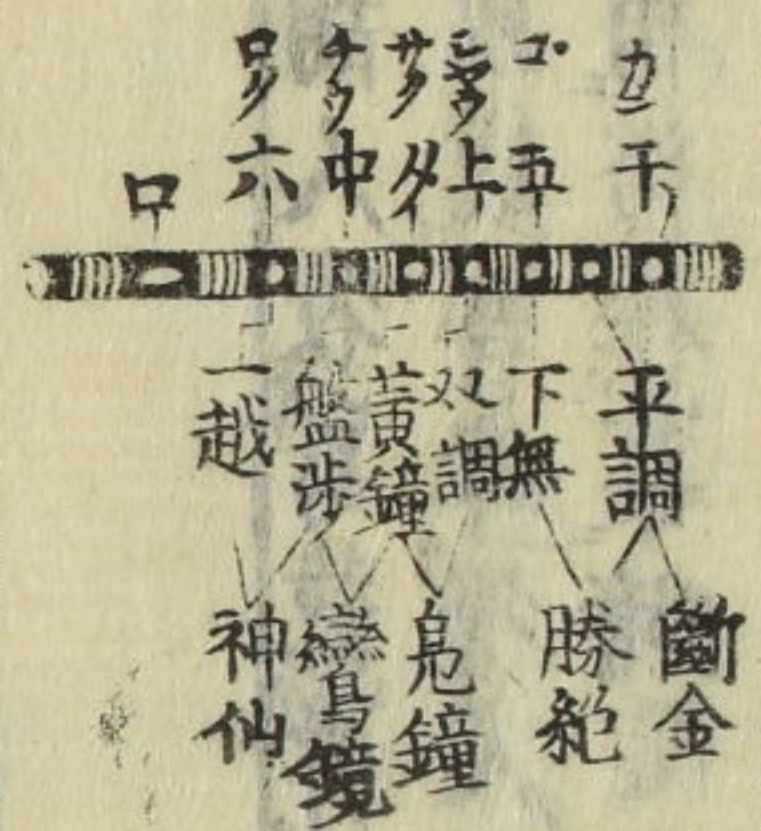 カン
干
ゴ
五
シヤウ
上
サク
夕
チウ
中
ロク
六
口
平調
下無
双調
黄鐘
盤渉
一越
斷金
勝絶
鳧鐘
鸞鏡
神仙